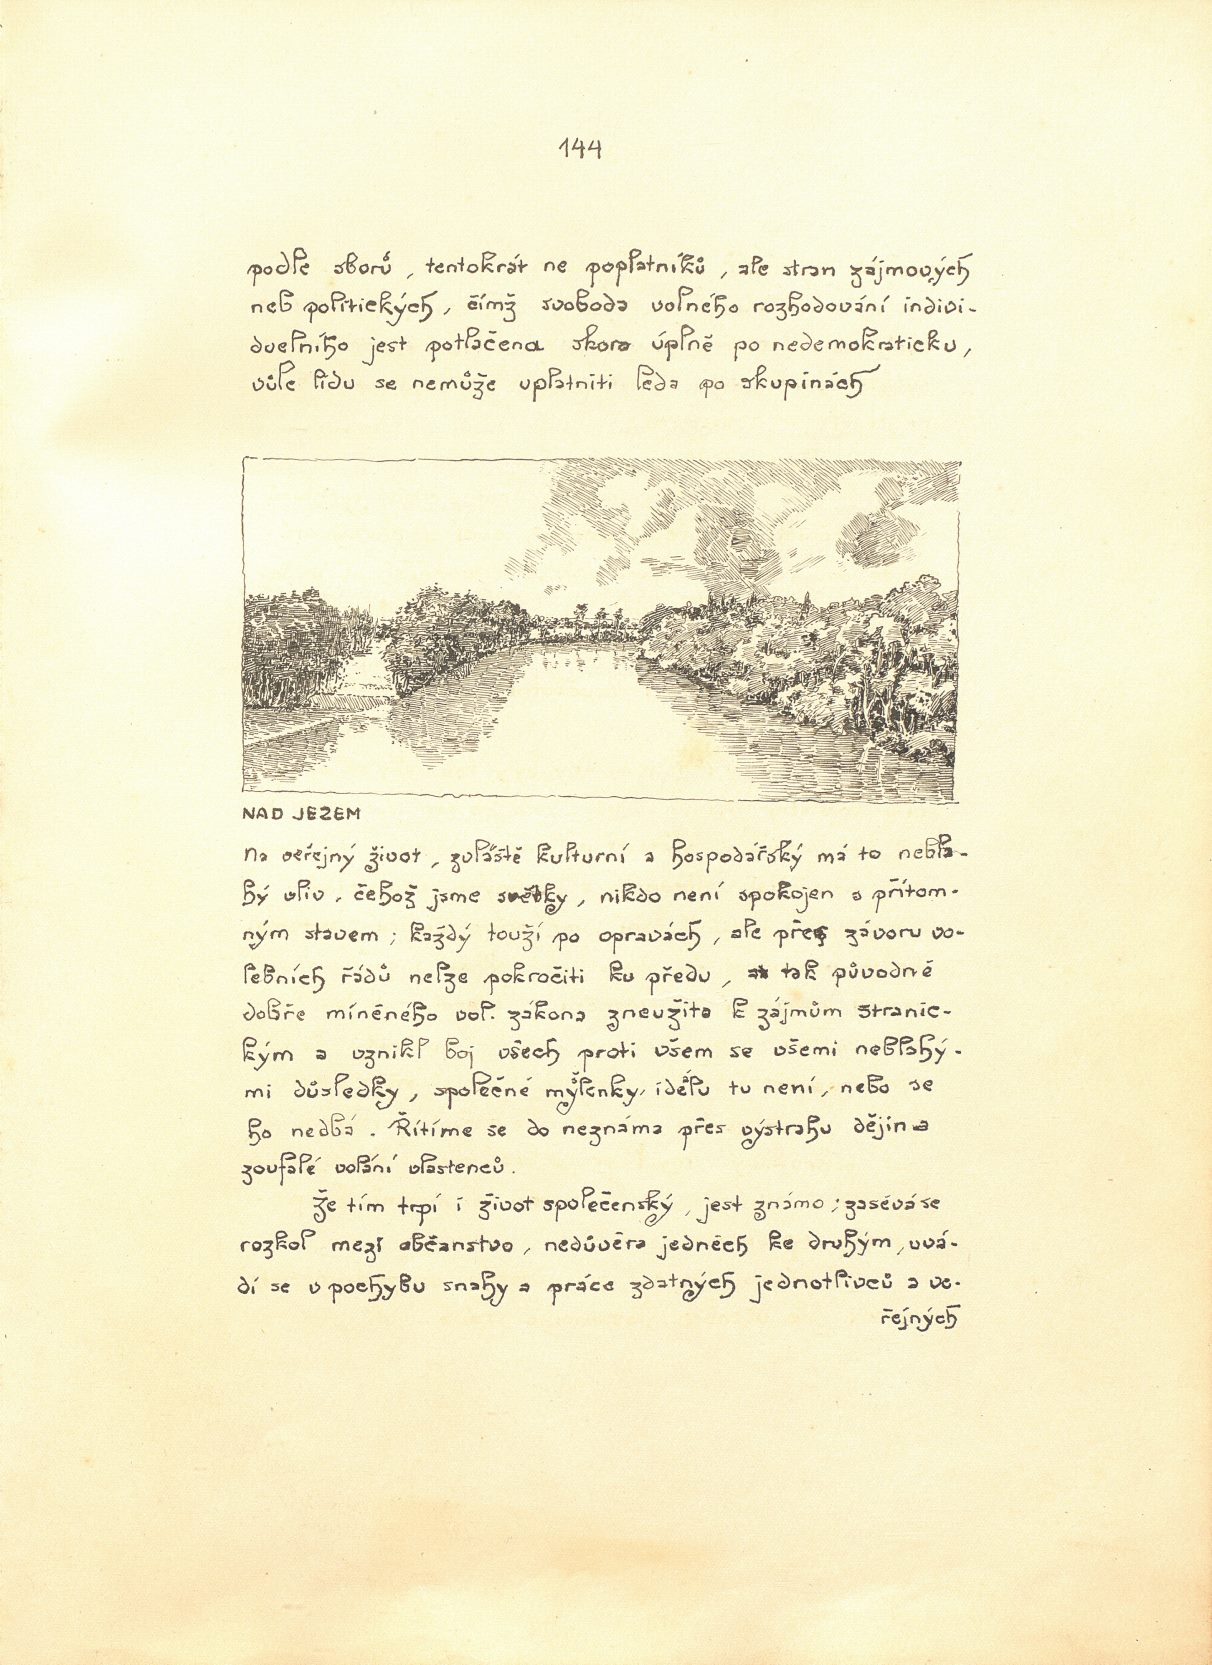 144
podle sborů, tentokrát ne poplatníků, ale stran zájmových
neb politických, čímž svoboda volného rozhodování indivi-
duelního jest potlačena skoro úplně po nedemokraticku,
vůle lidu se nemůže uplatniti leda po skupinách
NAD JEZEM
Na veřejný život, zvláště kulturní a hospodářský má to nebla-
hý vliv, čehož jsme svědky, nikdo není spokojen s přítom-
ným stavem; každý touží po opravách, ale přes závoru vo-
lebních řádů nelze pokročiti ku předu, tak původně
dobře míněného vol. zákona zneužito k zájmům stranic-
kým a vznikl boj všech proti všem se všemi neblahý-
mi důsledky, společné myšlenky, ideálu tu není, nebo se
ho nedbá. Řítíme se do neznáma přes výstrahu dějin a
zoufalé volání vlastenců.
Že tím trpí i život společenský, jest známo; zasévá se
rozkol mezi občanstvo, nedůvěra jedněch ke druhým, uvá-
dí se v pochybu snahy a práce zdatných jednotlivců a ve-
řejných